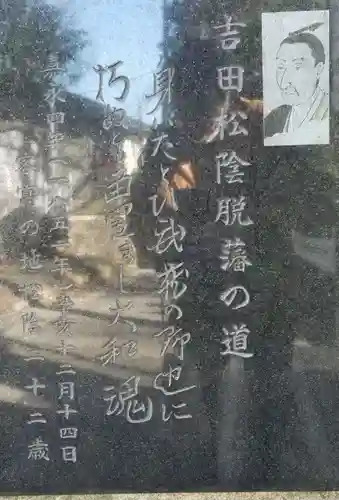 吉田松陰脱藩の道
身はたとひ武蔵の野辺に
朽ぬとも留置まし大和魂
嘉永四年(一八五一年)辛亥十二月十四日
松陰二十二歳